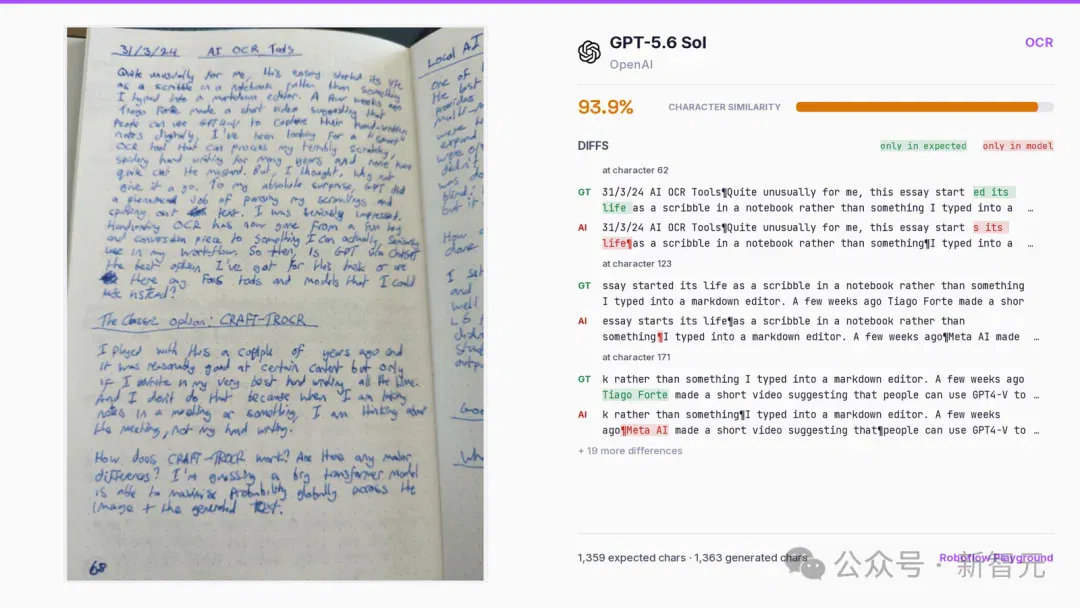 31/3/24 AI OCR Tools
Quite unusually for me, this essay started its life
as a scribble in a notebook rather than something
I typed into a markdown editor. A few weeks ago
Tiago Forte made a short video suggesting that
people can use GPT4-V to capture their handwritten
notes digitally. I've been looking for a "smart"
OCR tool that can process my terribly scratchy,
spidery hand writing for many years and none have
quite cut the mustard. But, I thought, why not
give it a go. To my absolute surprise, GPT did
a phenomenal job of parsing my scrawlings and
spitting out text. I was seriously impressed.
Handwriting OCR has now gone from a fun toy
and conversation piece to something I can actually, seriously
use in my workflow. So then, is GPT via ChatGPT
the best option I've got for this task or are
there any FOSS tools and models that I could
use instead?
The Classic Option: CRAFT-TROCR
I played with this a couple of years ago and
it was reasonably good at certain content but only
if I write in my very best hand writing all the time.
And I don't do that because when I am taking
notes in a meeting or something, I am thinking about
the meeting, not my hand writing.
How does CRAFT-TROCR work? Are there any major
difference? I'm guessing a big transformer model
is able to maximise probability globally across the
image + the generated text.
68
Local AI
one of
the best
provides
multi-m
were
expand
were o
didn't
was do
blind:
but it
How
done
I set
and
well
1.6
didn
Stru
outpu
Goo
Wh
GPT-5.6 Sol
OpenAI
OCR
93.9% CHARACTER SIMILARITY
DIFFS only in expected only in model
at character 62
GT 31/3/24 AI OCR Tools¶Quite unusually for me, this essay start ed its
life as a scribble in a notebook rather than something I typed into a …
AI 31/3/24 AI OCR Tools¶Quite unusually for me, this essay start s its
life¶as a scribble in a notebook rather than something¶I typed into a …
at character 123
GT ssay started its life as a scribble in a notebook rather than something
I typed into a markdown editor. A few weeks ago Tiago Forte made a shor
AI essay starts its life¶as a scribble in a notebook rather than
something¶I typed into a markdown editor. A few weeks ago¶Meta AI made …
at character 171
GT k rather than something I typed into a markdown editor. A few weeks ago
Tiago Forte made a short video suggesting that people can use GPT4-V to …
AI k rather than something¶I typed into a markdown editor. A few weeks
ago¶Meta AI made a short video suggesting that¶people can use GPT4-V to …
+ 19 more differences
1,359 expected chars · 1,363 generated chars
Roboflow Playground
公众号 · 新智元